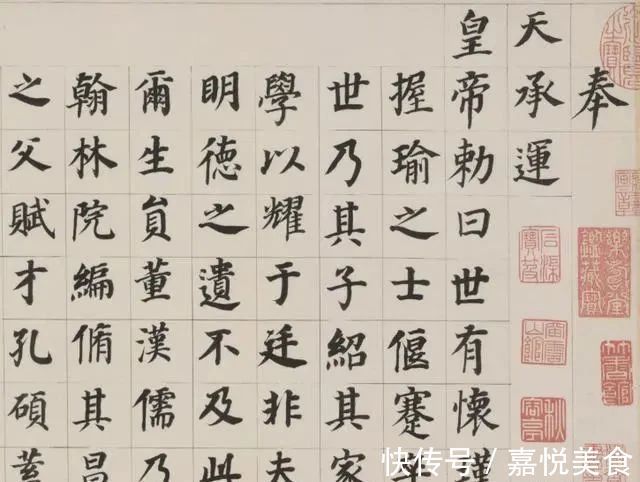 奉
天承運
皇帝勅曰世有懷瑾
握瑜之士偃蹇半
世乃其子紹其家
學以耀于廷非夫
明德之遺不及此
爾生員董漢儒乃
翰林院編脩其昌
之父賦才孔碩蓄
快传号／嘉悦美食